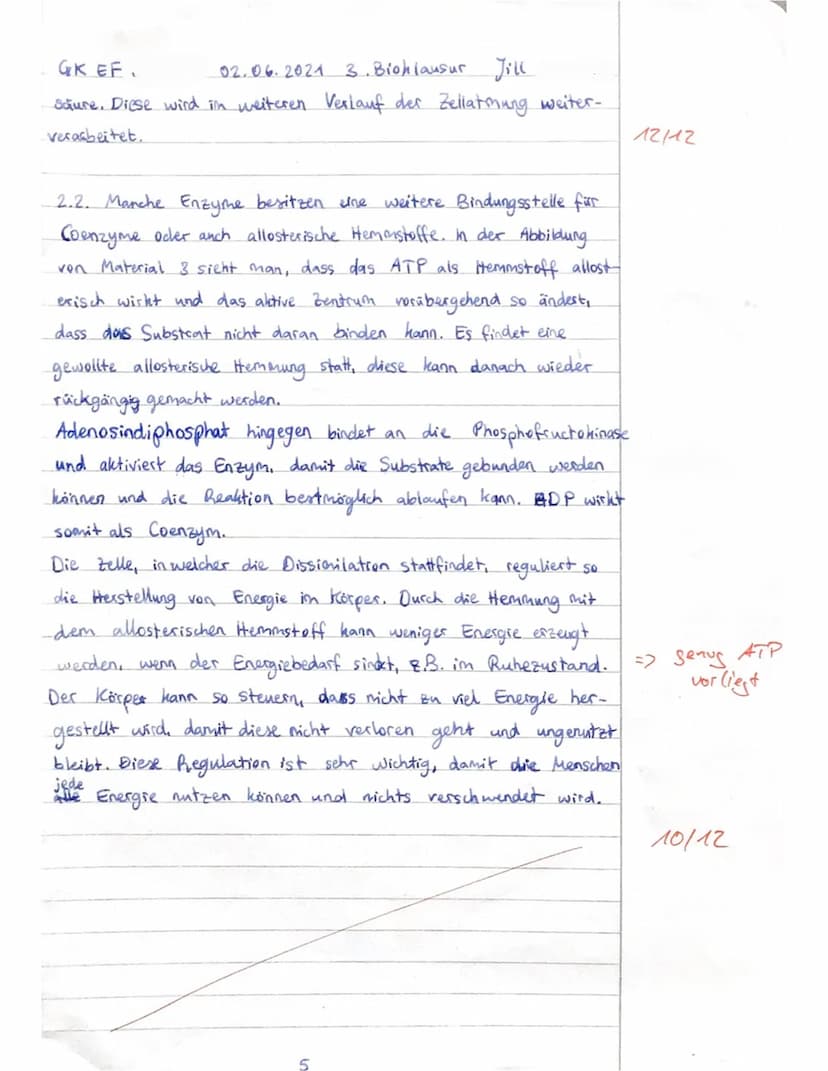 GK EF. 02.06.2021 3. Bioklausur Jill
säure. Diese wird im weiteren Verlauf der Zellatmung weiter-
verarbeitet.
12/12
2.2. Manche Enzyme besitzen eine weitere Bindungsstelle für
Coenzyme oder auch allosterische Hemmstoffe. In der Abbildung
von Material 3 sieht man, dass das ATP als Hemmstoff allost-
erisch wirkt und das aktive Zentrum vorübergehend so ändert,
dass das Substrat nicht daran binden kann. Es findet eine
gewollte allosterische Hemmung statt, diese kann danach wieder
rückgängig gemacht werden.
Adenosindiphosphat hingegen bindet an die Phosphofructokinase
und aktiviert das Enzym, damit die Substrate gebunden werden
können und die Reaktion bestmöglich ablaufen kann. ADP wirkt
somit als Coenzym.
Die Zelle, in welcher die Dissimilation stattfindet, reguliert so
die Herstellung von Energie im Körper. Durch die Hemmung mit
dem allosterischen Hemmstoff kann weniger Energie erzeugt
werden, wenn der Energiebedarf sinkt, z.B. im Ruhezustand.
=> genug ATP
vorliegt
Der Körper kann so steuern, dass nicht zu viel Energie her-
gestellt wird, damit diese nicht verloren geht und ungenutzt
bleibt. Diese Regulation ist sehr wichtig, damit die Menschen
jede Energie nutzen können und nichts verschwendet wird.
10/12
5